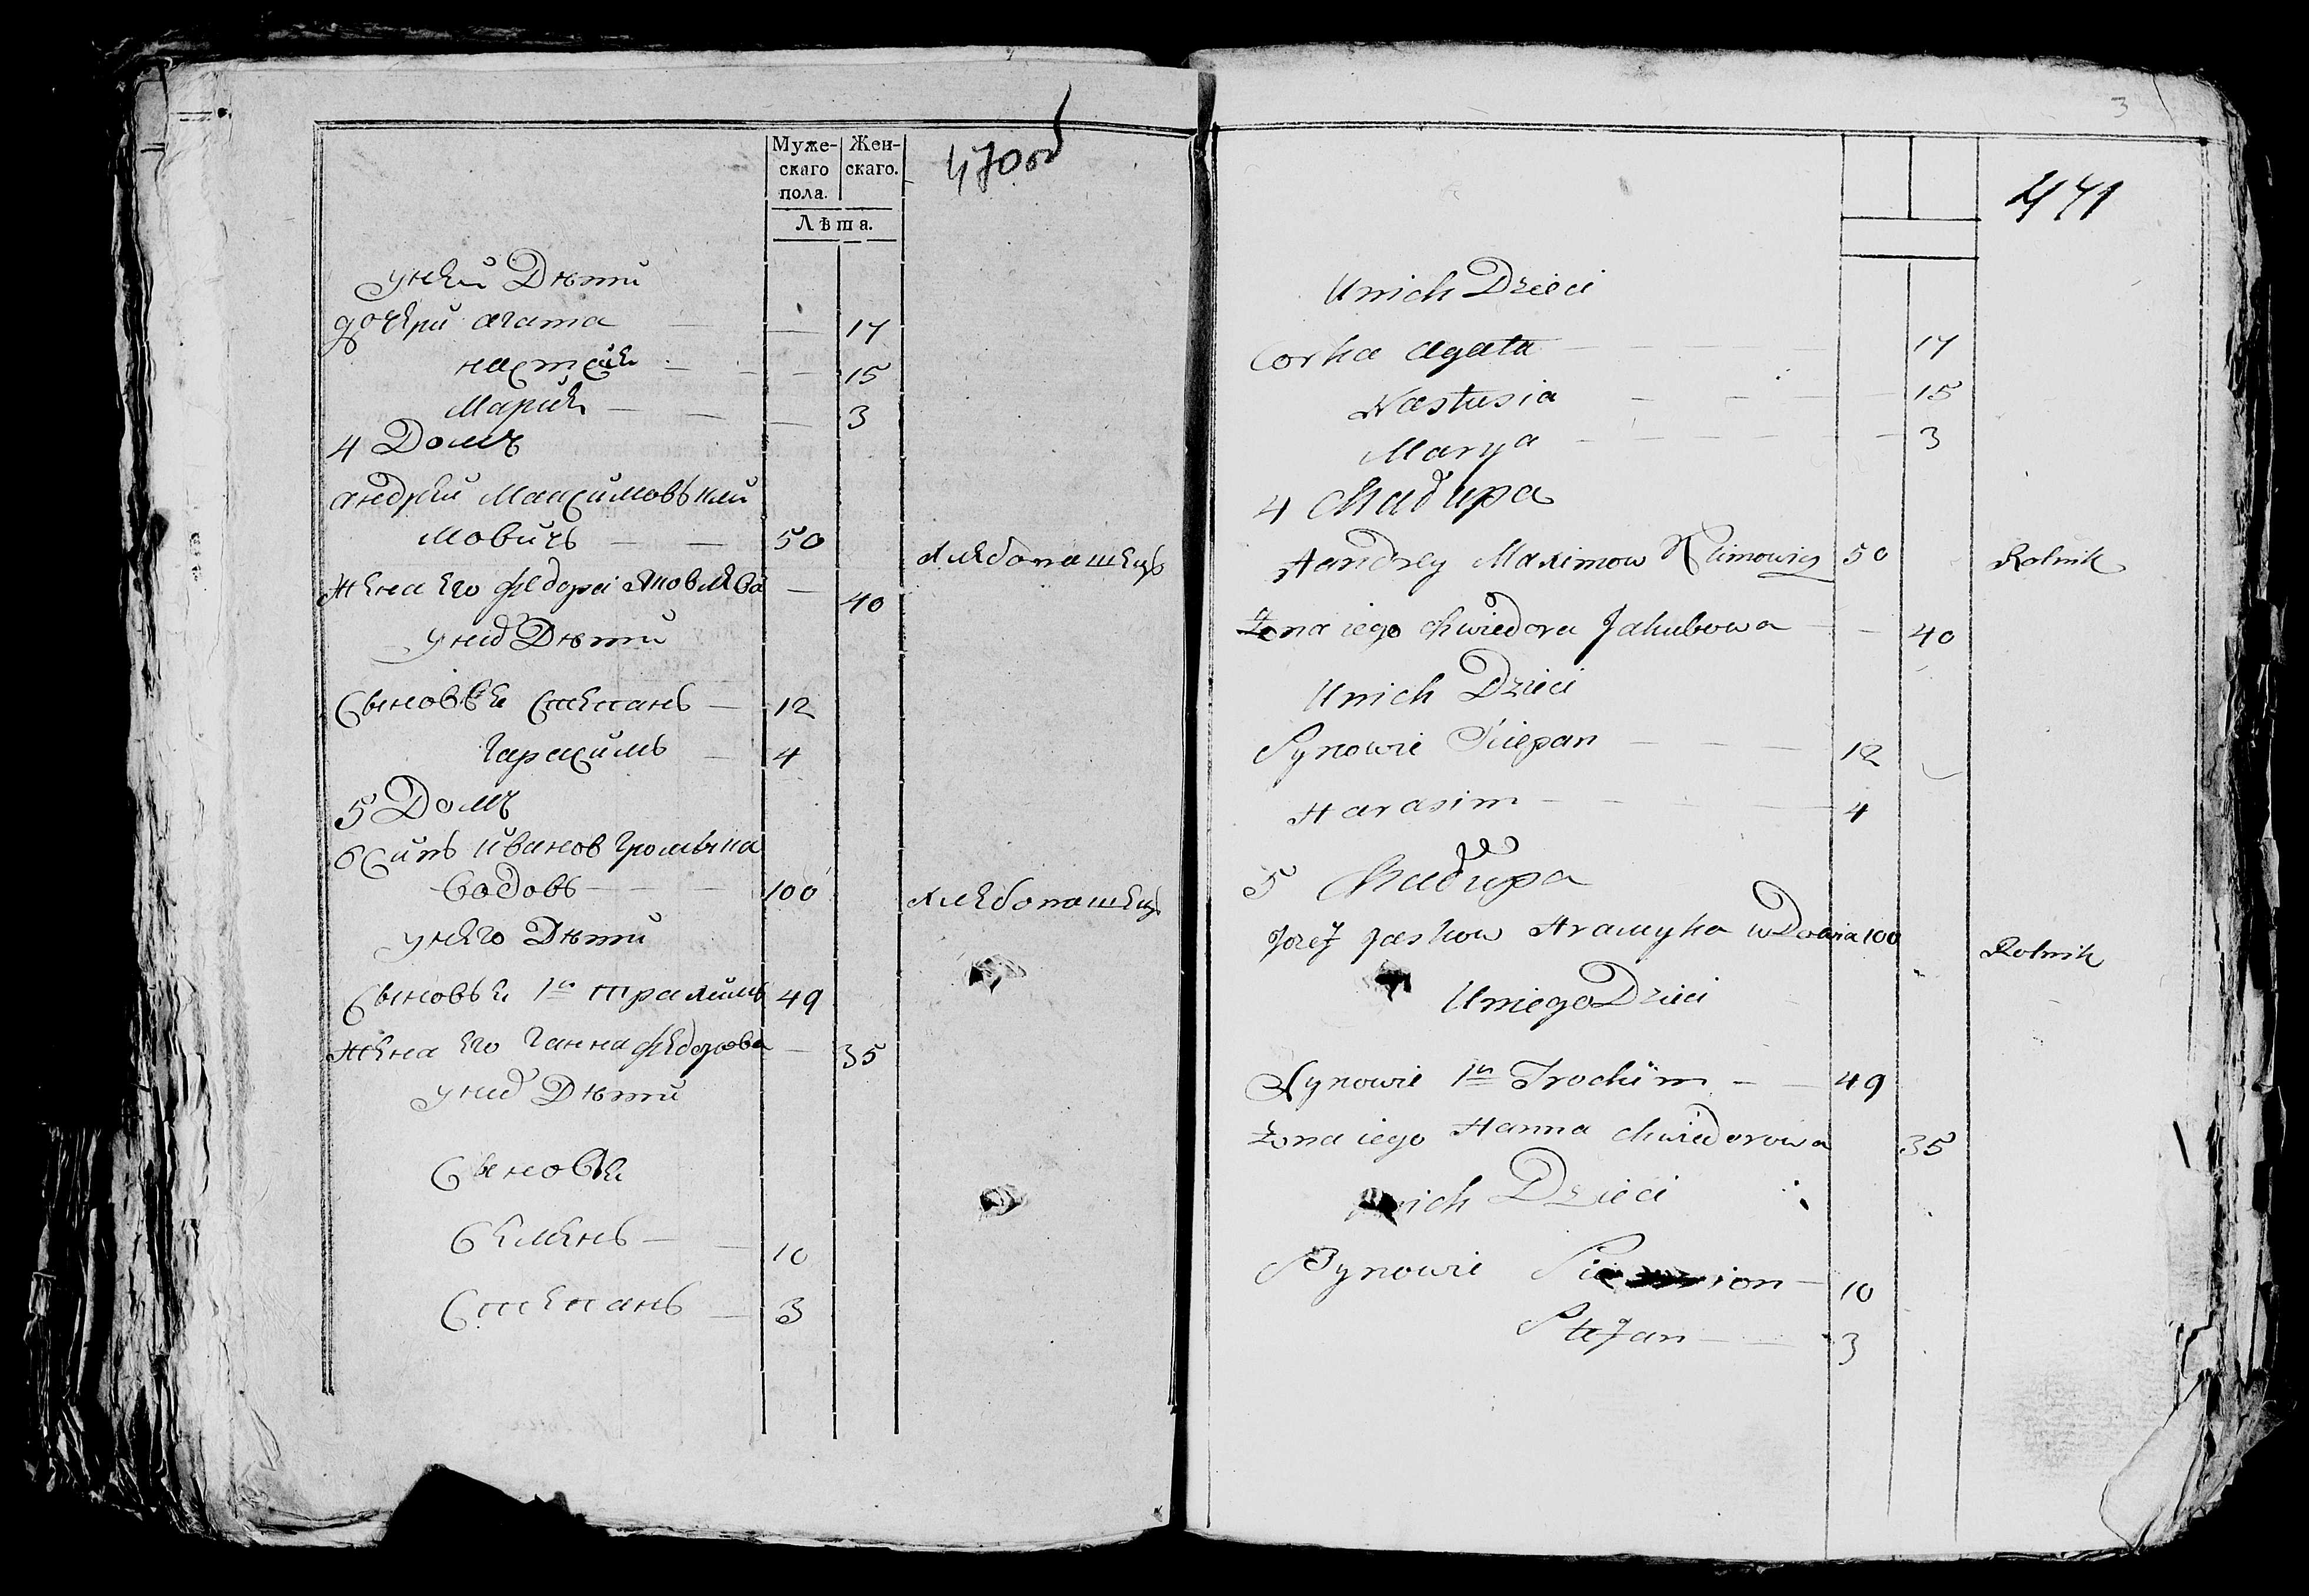 Муже-
скаго
пола.
Жен-
скаго.
Лѣта.
470об
уней Дѣти
дочери агата — — 17
настасія — — 15
Марія — — 3
4 Домъ
андрей Максимовъ Кли
мовичъ — — 50
хлебопашецъ
жена его федора Яковлева — 40
у них Дѣти
Сыновѣя Степанъ — 12
Гарасимъ — 4
5 Домъ
Осипъ Иванов Громыка
Вдовъ — — 100
хлебопашецъ
унего Дѣти
Сыновья 1й трахимъ 49
жена его Ганна федорова — 35
у них Дѣти
Сыновья
Семенъ — — 10
Степанъ — 3
3
471
Unich Dzieci
Corka Agata — — — — 17
Nastusia — — — — 15
Marya — — — — 3
4 Chałupa
Handrey Maximow Klimowicz 50
Rolnik
Żona iego Chwiedora Jakubowa — — 40
Unich Dzieci
Synowie Sciepan — — — 12
Harasim — — — 4
5 Chałupa
Jozef Jaskow Hramyka wDowia 100
Rolnik
Uniego Dzieci
Synowie 1n Trochim — — 49
Żona iego Hanna Chwiedorowa 35
Unich Dzieci
Synowie Siemion — 10
Stefan — — 3